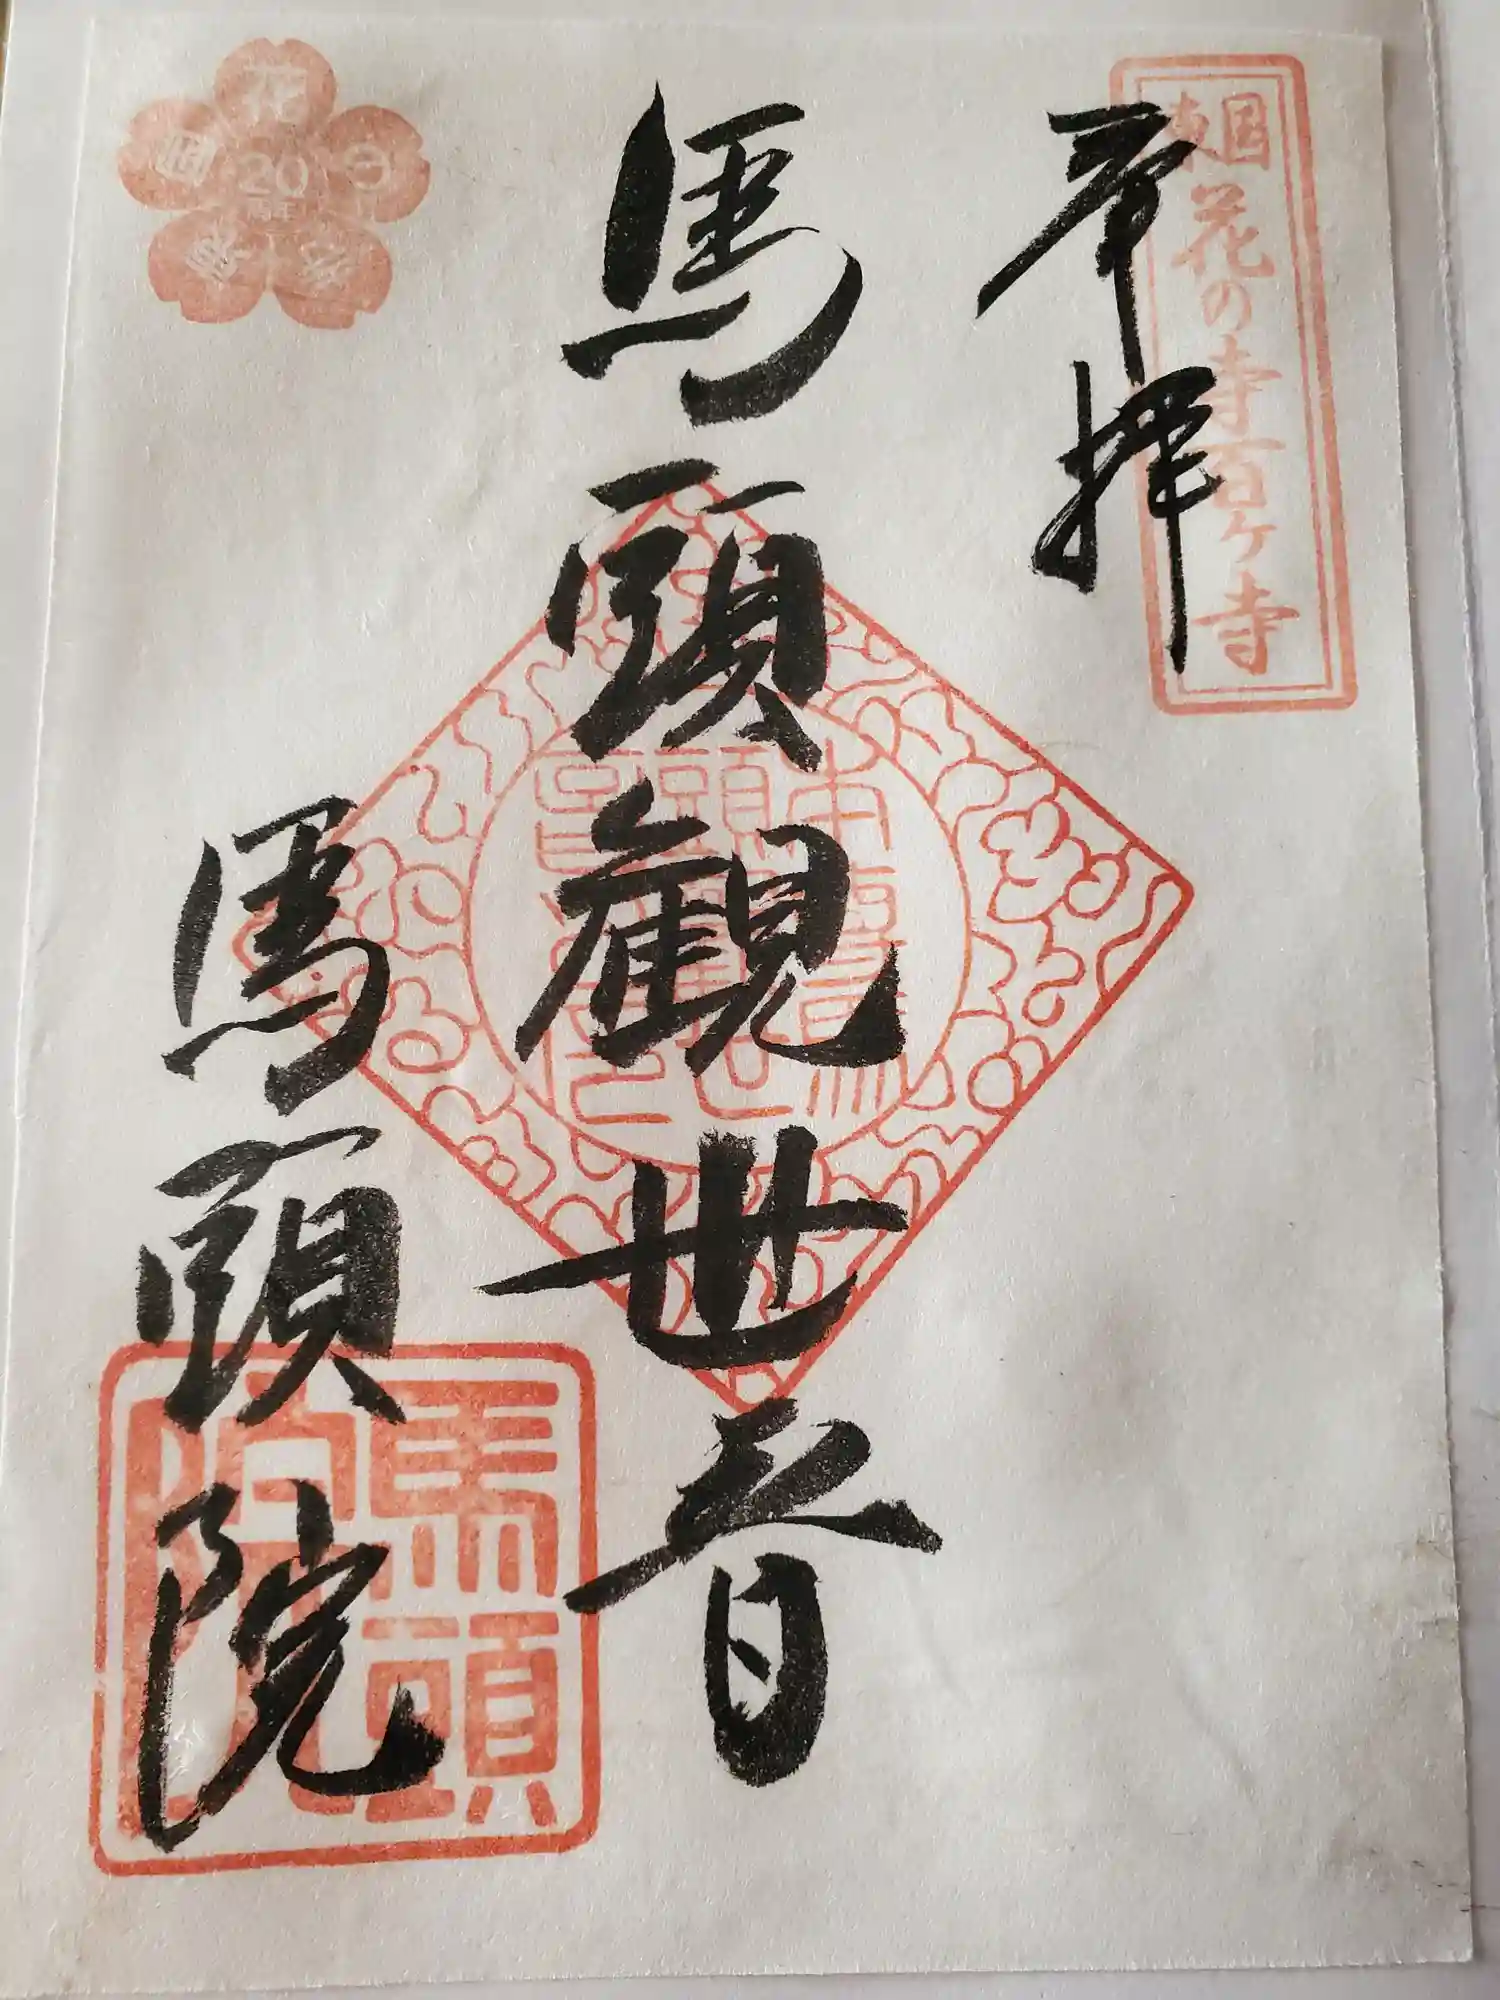 奉拝
東国花の寺百ヶ寺
馬頭観世音
馬頭院
馬頭院
20
周年